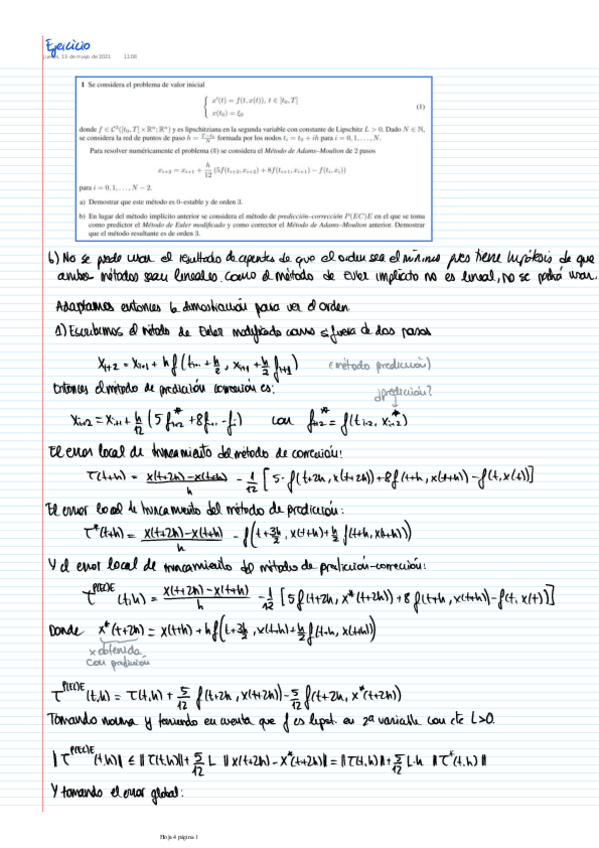 Ejercicio
jueves, 13 de mayo de 2021 11:08
1 Se considera el problema de valor inicial
{ x'(t) = f(t, x(t)), t ∈ [t₀, T]
x(t₀) = ξ₀ (1)
donde f ∈ C³([t₀, T] × ℝⁿ; ℝⁿ) y es lipschitziana en la segunda variable con constante de Lipschitz L > 0. Dado N ∈ ℕ,
se considera la red de puntos de paso h = (T−t₀)/N formada por los nodos tᵢ = t₀ + ih para i = 0, 1, . . . , N.
Para resolver numéricamente el problema (1) se considera el Método de Adams–Moulton de 2 pasos
xᵢ₊₂ = xᵢ₊₁ + h/12 (5f(tᵢ₊₂, xᵢ₊₂) + 8f(tᵢ₊₁, xᵢ₊₁) − f(tᵢ, xᵢ))
para i = 0, 1, . . . , N − 2.
a) Demostrar que este método es 0–estable y de orden 3.
b) En lugar del método implícito anterior se considera el método de predicción–corrección P(EC)E en el que se toma
como predictor el Método de Euler modificado y como corrector el Método de Adams–Moulton anterior. Demostrar
que el método resultante es de orden 3.
b) No se puede usar el resultado de apuntes de que el orden sea el mínimo pues tiene hipótesis de que
ambos métodos sean lineales. Como el método de Euler implícito no es lineal, no se podrá usar.
Adaptamos entonces la demostración para ver el orden
1) Escribimos el método de Euler modificado como si fuera de dos pasos
xᵢ₊₂ = xᵢ₊₁ + h f(tᵢ₊₁ + h/2, xᵢ₊₁ + h/2 fᵢ₊₁) (método predicción)
Entonces el método de predicción corrección es: ¿predicción?
xᵢ₊₂ = xᵢ₊₁ + h/12 (5f*ᵢ₊₂ + 8fᵢ₊₁ - fᵢ) con f*ᵢ₊₂ = f(tᵢ₊₂, x*ᵢ₊₂)
El error local de truncamiento del método de corrección:
τ(t,h) = (x(t+2h) - x(t+h))/h - 1/12 [5·f(t+2h, x(t+2h)) + 8f(t+h, x(t+h)) - f(t, x(t))]
El error local de truncamiento del método de predicción:
τ*(t,h) = (x(t+2h) - x(t+h))/h - f(t+3h/2, x(t+h) + h/2 f(t+h, x(t+h)))
Y el error local de truncamiento del método de predicción-corrección:
τᴾ⁽ᴱᶜ⁾ᴱ(t,h) = (x(t+2h) - x(t+h))/h - 1/12 [5f(t+2h, x*(t+2h)) + 8f(t+h, x(t+h)) - f(t, x(t))]
Donde x*(t+2h) = x(t+h) + h f(t+3h/2, x(t+h) + h/2 f(t+h, x(t+h)))
x obtenida
con predicción
τᴾ⁽ᴱᶜ⁾ᴱ(t,h) = τ(t,h) + 5/12 f(t+2h, x(t+2h)) - 5/12 f(t+2h, x*(t+2h))
Tomando norma y teniendo en cuenta que f es lipsch. en 2ª variable con cte L>0.
‖τᴾ⁽ᴱᶜ⁾ᴱ(t,h)‖ ≤ ‖τ(t,h)‖ + 5/12 L ‖x(t+2h) - x*(t+2h)‖ = ‖τ(t,h)‖ + 5/12 L·h ‖τ*(t,h)‖
Y tomando el error global:
Hoja 4 página 1